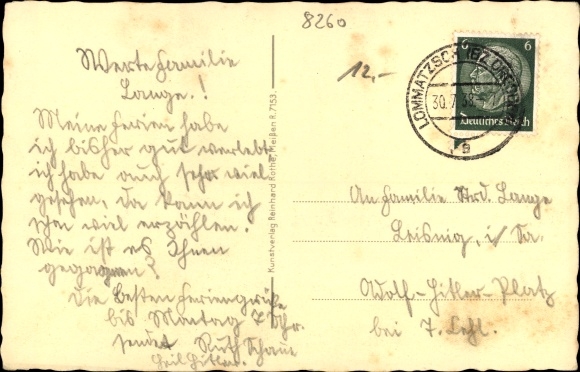 8260
12,-
Werte Familie
Lange.!
Meine Ferien habe
ich bisher gut verlebt,
ich habe auch schon viel
gesehen, da kann ich
schon viel erzählen.
Wie ist es Ihnen
gegangen?
Die besten Feriengrüße
bis Montag 7 Uhr.
sendet Ruth
Heil Hitler.
Kunstverlag Reinhard Rothe, Meißen R. 7153.
6 6
Deutsches Reich
LOMMATZSCH (BZ DRESDEN)
30.7.38
a
An Familie Lange
Leisnig, i/ Sa.
Adolf-Hitler-Platz
bei